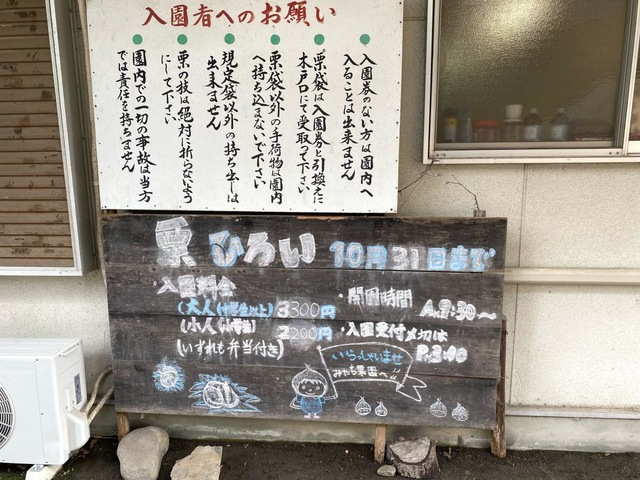 入園者へのお願い
入園券のない方は園内へ
入ることは出来ません
栗袋は入園券と引換えに
木戸口にて受取って下さい
栗袋以外の手荷物は園内
へ持ち込まないで下さい
規定袋以外の持ち出しは
出来ません
栗の枝は絶対に折らないよう
にして下さい
園内での一切の事故は当方
では責任を持ちません
栗ひろい 10月31日まで
・入園料金
(大人(中学生以上) 3300円
(小人(小学生) 2200円
(いずれも弁当付き)
・開園時間
A.8:30〜
・入園受付〆切は
P.3:00
いらっしゃいませ
みやち栗園へ